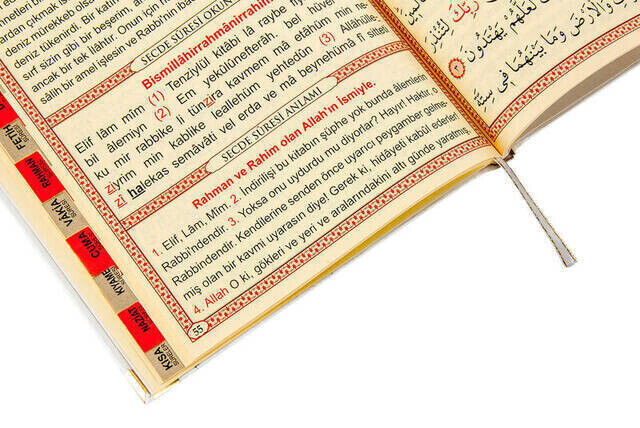 deniz tükenirdi. Bir katı
sırf sizin gibi bir beşerim, an
ancak bir tek ilâhtır. Onun için h
sâlih bir amel işlesin ve Rabb'ın ibad
SECDE SÛRESİ OKUN
Bismillâhirrahmânirrahîm
Elif lâm mîm (1) Tenziylül kitâbi lâ raybe
bil âlemiyn (2) Em yekûlûnefterâh. bel hüvel
ku mir rabbike li tünzira kavmem mâ etâhüm min ne
ziyrim min kablike leallehüm yehtedûn (3) Allâhülle-
zî halekas semâvâti vel erda ve mâ beynehümâ fî sitteti
SECDE SÛRESİ ANLAMI
Rahman ve Rahim olan Allah'ın İsmiyle.
1. Elif, Lâm, Mîm. 2. İndirilişi bu kitabın şüphe yok bunda âlemlerin
Rabbi'ndendir. 3. Yoksa onu uydurdu mu diyorlar? Hayır! Haktır, o
Rabbindendir. Kendilerine senden önce uyarıcı peygamber gelme-
miş olan bir kavmi uyarasın diye! Gerek ki, hidâyeti kabûl ederler!
4. Allah O ki, gökleri ve yeri ve aralarındakini altı günde yaratmış,
55
رَبِّكَ لِتُنْذِرَ
لَعَلَّهُمْ يَهْتَدُونَ
وَالْاَرْضَ وَمَا بَيْنَهُمَا فِي سِتَّةِ
FETİH
SURESİ
RAHMAN
SURESİ
VAKIA
SURESİ
CUMA
SURESİ
KIYAME
SURESİ
NAZİAT
SURESİ
KISA
SURELER